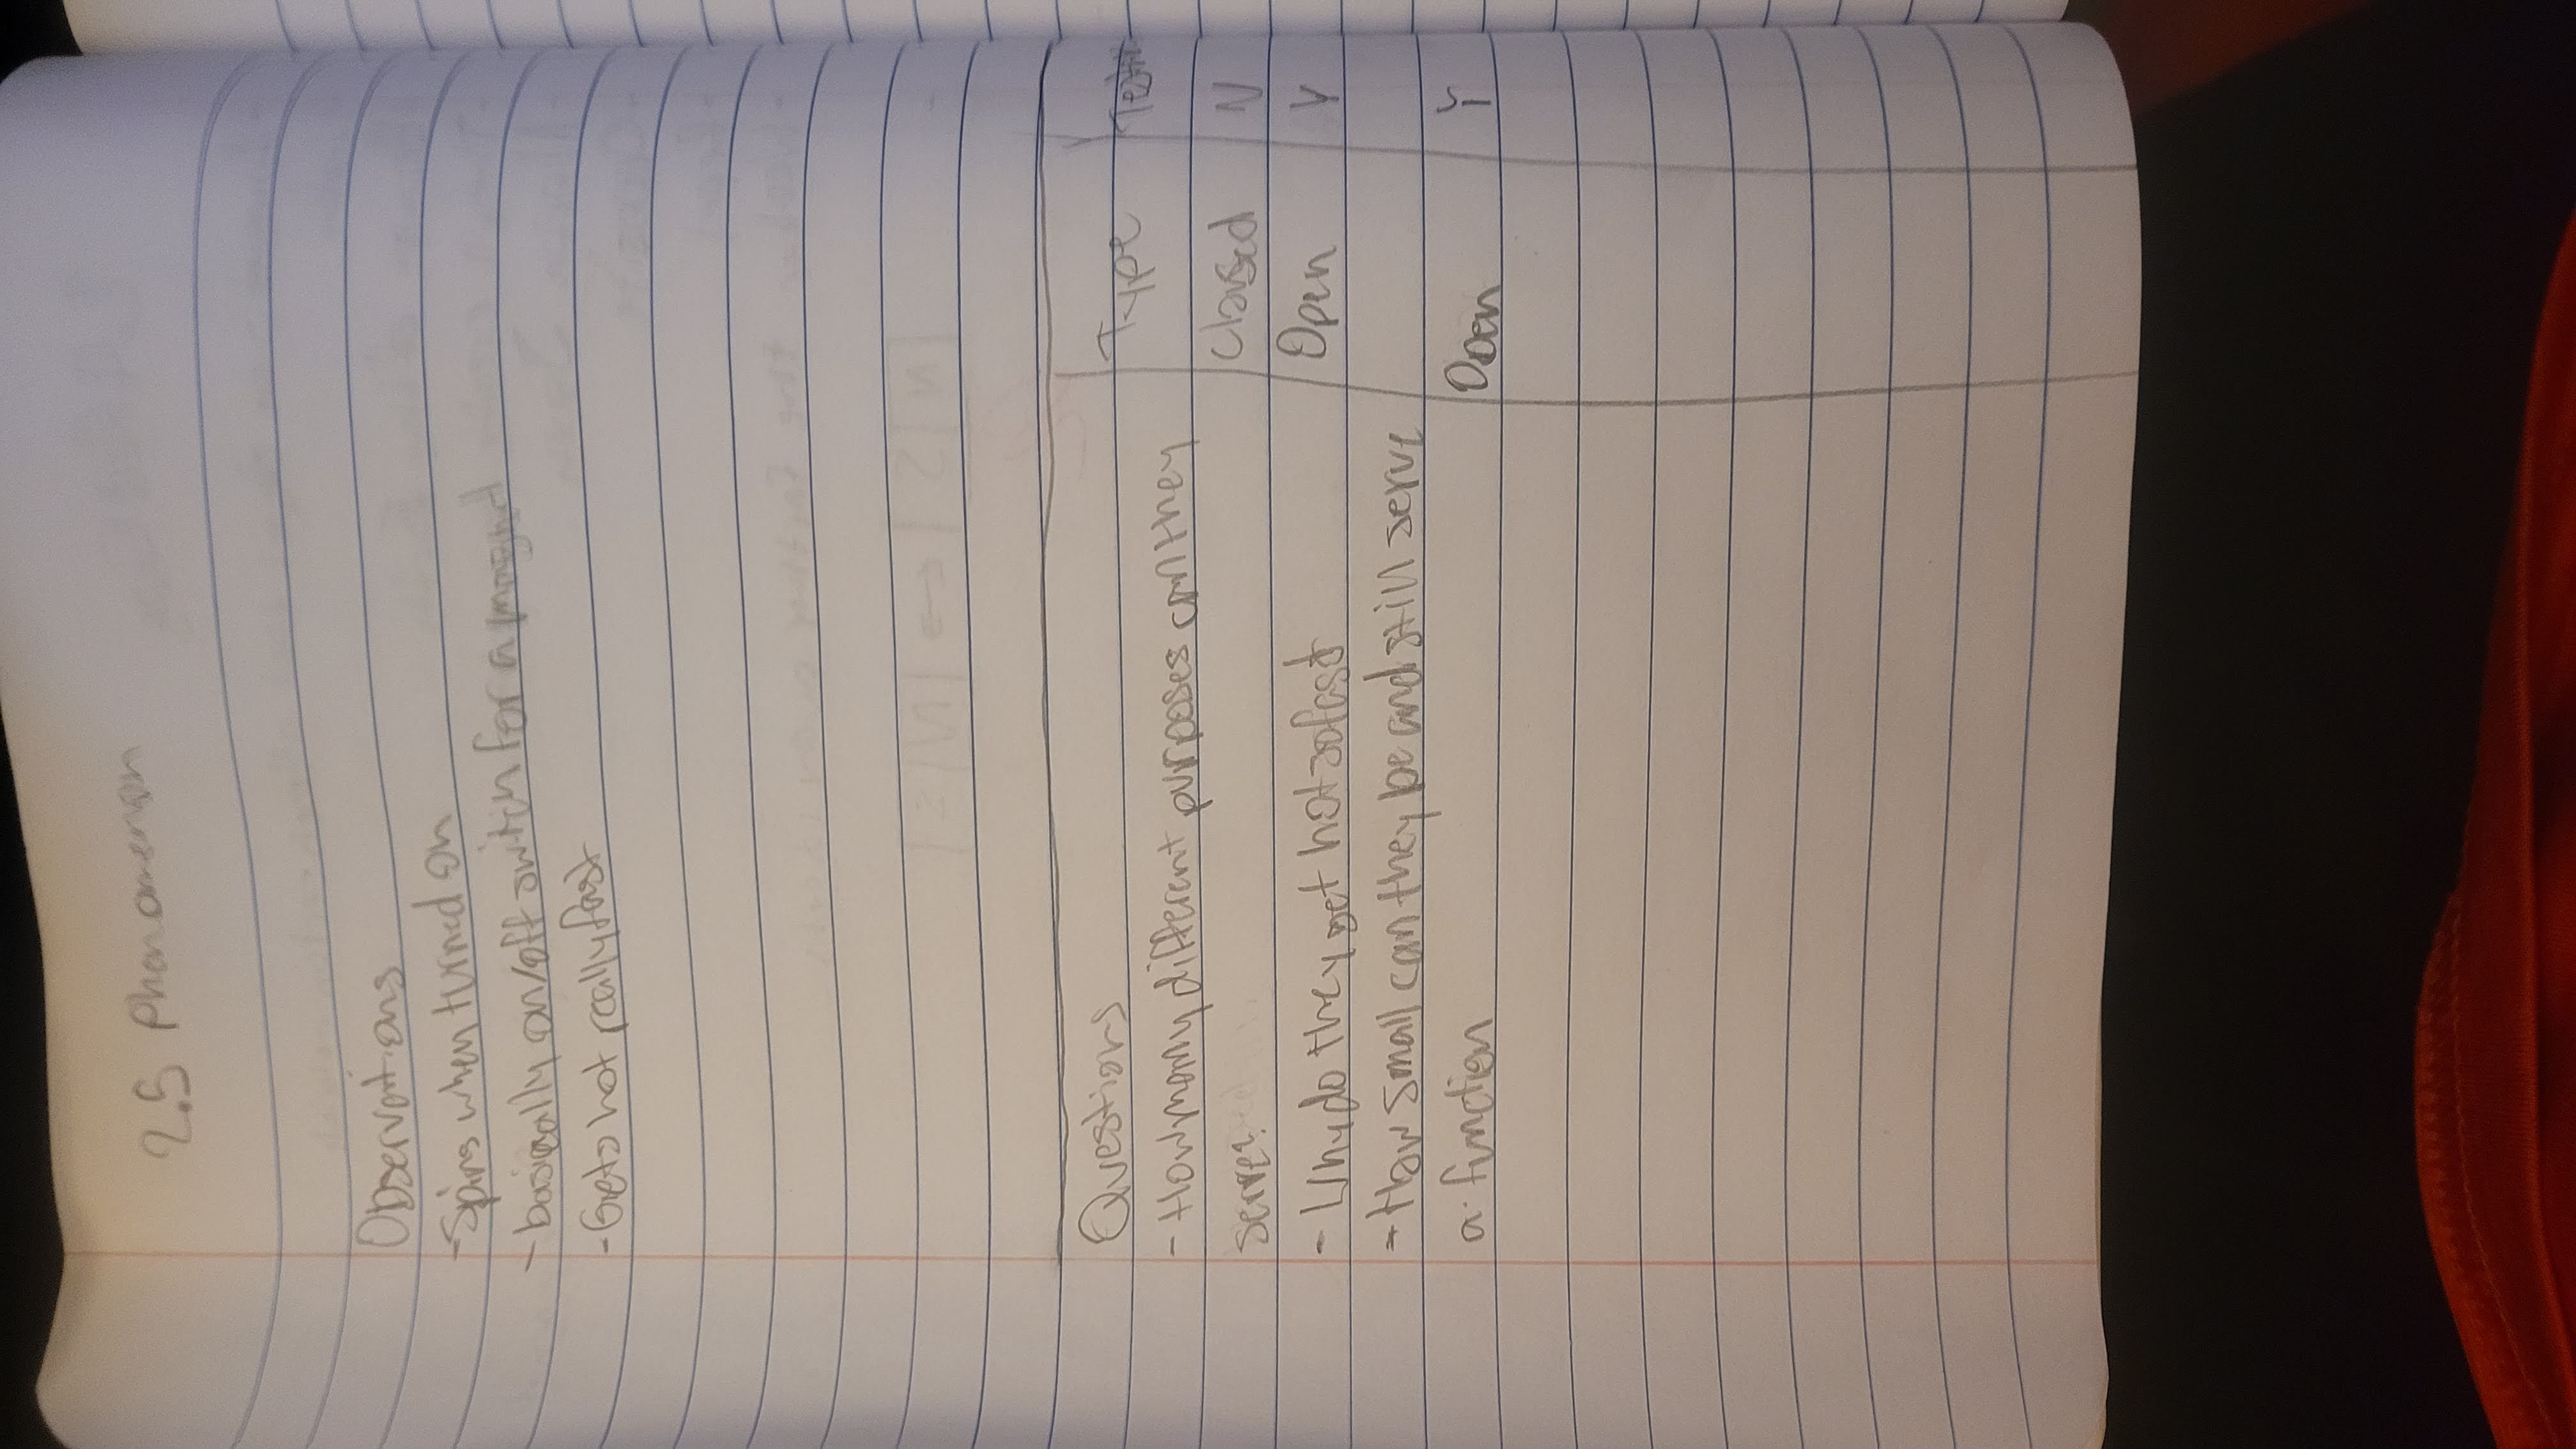 2.5 Phenomenon
Observations
-Spins when turned on
-basically on/off switch for a magnet
-Gets hot really fast
Questions Type
-How many different purposes can they Closed N
serve?
- Why do they get hot so fast Open Y
- How small can they be and still serve
a function Open Y